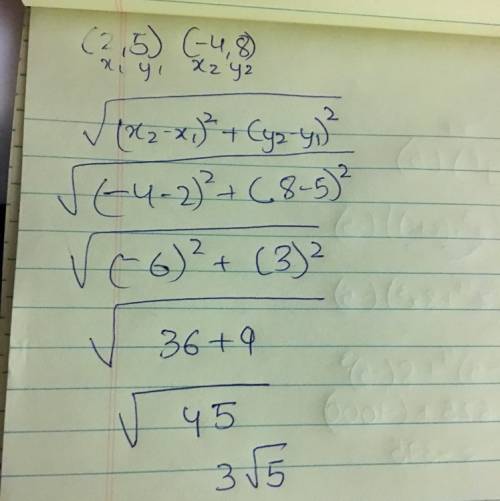 (2,5) (-4,8)
x₁ y₁ x₂ y₂
√(x₂-x₁)²+(y₂-y₁)²
√(-4-2)²+(.8-5)²
√(-6)²+(3)²
√36+9
√45
3√5